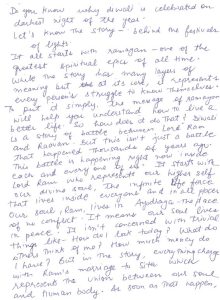 Do you know why diwali is celebrated on
darkest night of the year.
Let's know the story - behind the festivals
of lights.
It all starts with ramayan - one of the
greatest spiritual epics of all time.
While the story has many layers of
meaning but at its core, it represents
every person's struggle to know themselves.
To put it simply, the message of ramayan
will help you understand how to live a
better life. So how does it do that? Diwali
is a story of battle between Lord Ram
and Ravan. But this isn't just a battle
that happened thousands of years ago.
This battle is happening right now inside
each and every one of us. It starts with
lord Ram who represents our higher self
our divine soul, the infinite life force
that lives inside everyone and like all other
our soul, Ram, lives in Ayodhya - the place
of no conflict. It means our soul lives
in peace. It isn't concerned with trivial
things like: How do I look today? What do
others think of me? How much money do
I have? But in the story everything change
with Ram's marriage to Sita which
represents the union between our soul
and human body. As soon as that happen